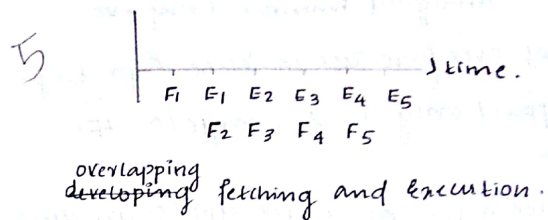 5
time.
F1 E1 E2 E3 E4 E5
F2 F3 F4 F5
overlapping
developing fetching and Execution.